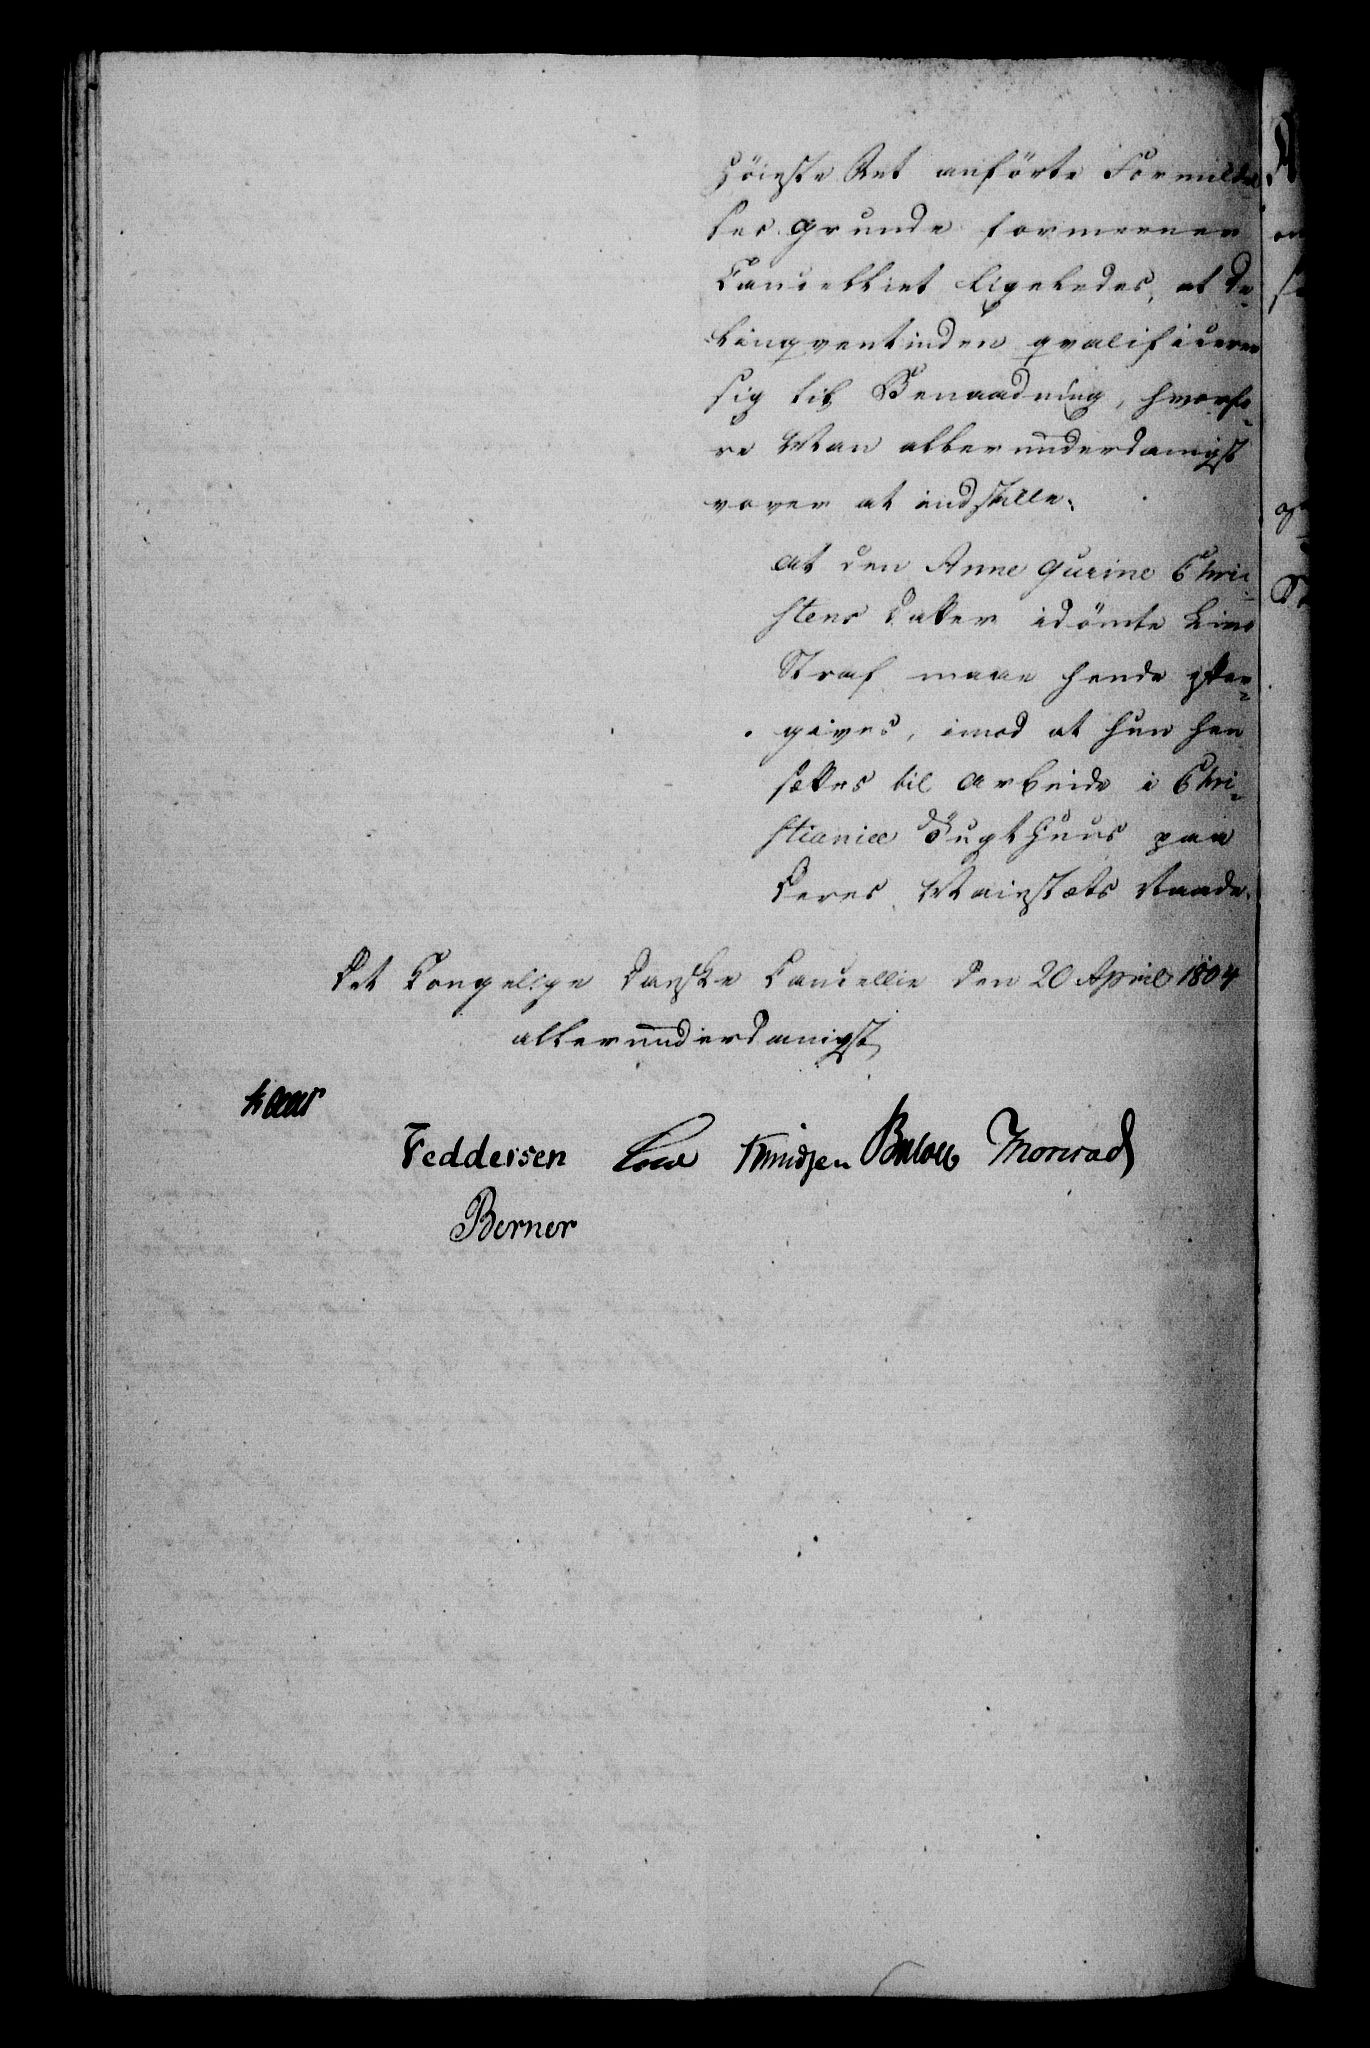 Höieste Ret anförte Formildel-
ses grunde formeener
Cancelliet ligeledes, at De-
linqventinden qvalificerer
sig til Benaadning, hvorfo-
re Man allerunderdanigst
vover at indstille:
at den Anne Gurine Chri-
stens Datter idömte Livs
Straf maae hende efter-
gives, imod at hun hen
sættes til Arbeide i Chri-
stianiæ Tugthuus paa
Deres Majestæts Naade.
Det Kongelige Danske Cancellie den 20 April 1804
allerunderdanigst
Kaas
Feddersen Knudsen Bülow Monrad
Berner